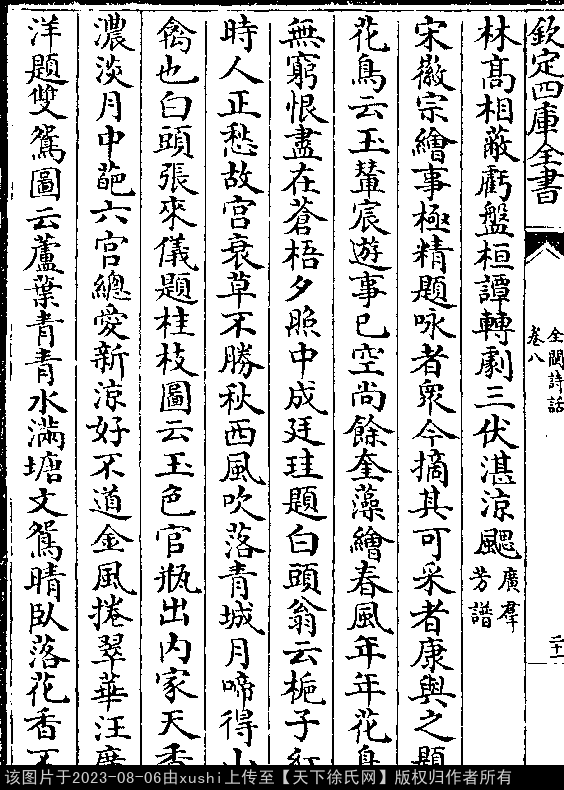 欽定四庫全書
全閩詩話
卷八
二十一
林高相蔽虧盤桓譚轉劇三伏湛涼颸
廣羣
芳譜
宋徽宗繪事極精題咏者衆今摘其可采者康與之題
花鳥云玉輦宸遊事已空尚餘奎藻繪春風年年花鳥
無窮恨盡在蒼梧夕照中成廷珪題白頭翁云梔子紅
時人正愁故宫衰草不勝秋西風吹落青城月啼得山
禽也白頭張來儀題桂枝圖云玉色官瓶出内家天香
濃淡月中葩六宫總愛新涼好不道金風捲翠華汪廣
洋題雙鴛圖云蘆葉青青水滿塘文鴛晴臥落花香不
该图片于2023-08-06由xushi上传至【天下徐氏网】版权归作者所有